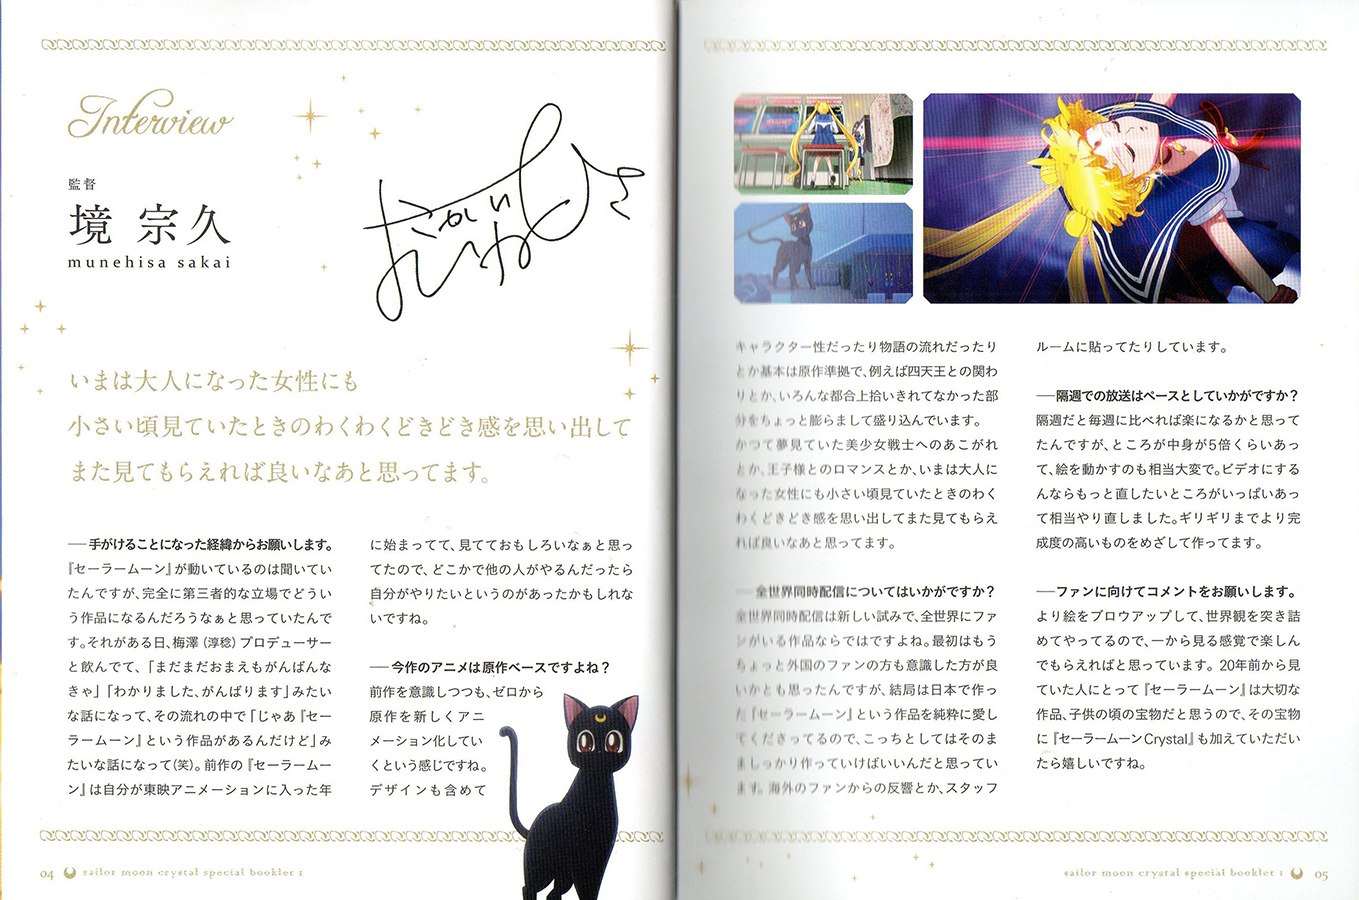 Interview
監督
境 宗久
munehisa sakai
いまは大人になった女性にも
小さい頃見ていたときのわくわくどきどき感を思い出して
また見てもらえれば良いなあと思ってます。
── 手がけることになった経緯からお願いします。
『セーラームーン』が動いているのは聞いてい
たんですが、完全に第三者的な立場でどうい
う作品になるんだろうなぁと思っていたんで
す。それがある日、梅澤（淳稔）プロデューサー
と飲んでて、「まだまだおまえもがんばんな
きゃ」「わかりました、がんばります」みたい
な話になって、その流れの中で「じゃあ『セー
ラームーン』という作品があるんだけど」み
たいな話になって（笑）。前作の『セーラームー
ン』は自分が東映アニメーションに入った年
に始まってて、見てておもしろいなぁと思っ
てたので、どこかで他の人がやるんだったら
自分がやりたいというのがあったかもしれな
いですね。
── 今作のアニメは原作ベースですよね？
前作を意識しつつも、ゼロから
原作を新しくアニ
メーション化してい
くという感じですね。
デザインも含めて
04 sailor moon crystal special booklet 1
キャラクター性だったり物語の流れだったり
とか基本は原作準拠で、例えば四天王との関わ
りとか、いろんな都合上拾いきれてなかった部
分をちょっと膨らまして盛り込んでいます。
かつて夢見ていた美少女戦士へのあこがれ
とか、王子様とのロマンスとか、いまは大人に
なった女性にも小さい頃見ていたときのわく
わくどきどき感を思い出してまた見てもらえ
れば良いなあと思ってます。
── 全世界同時配信についてはいかがですか？
全世界同時配信は新しい試みで、全世界にファ
ンがいる作品ならではですよね。最初はもう
ちょっと外国のファンの方も意識した方が良
いかとも思ったんですが、結局は日本で作っ
た『セーラームーン』という作品を純粋に愛し
てくださってるので、こっちとしてはそのま
ましっかり作っていけばいいんだと思ってい
ます。海外のファンからの反響とか、スタッフ
ルームに貼ってたりしています。
── 隔週での放送はペースとしていかがですか？
隔週だと毎週に比べれば楽になるかと思って
たんですが、ところが中身が5倍くらいあっ
て、絵を動かすのも相当大変で。ビデオにする
んならもっと直したいところがいっぱいあっ
て相当やり直しました。ギリギリまでより完
成度の高いものをめざして作ってます。
── ファンに向けてコメントをお願いします。
より絵をブロウアップして、世界観を突き詰
めてやってるので、一から見る感覚で楽しん
でもらえればと思っています。20年前から見
ていた人にとって『セーラームーン』は大切な
作品、子供の頃の宝物だと思うので、その宝物
に『セーラームーンCrystal』も加えていただい
たら嬉しいですね。
sailor moon crystal special booklet 1 05